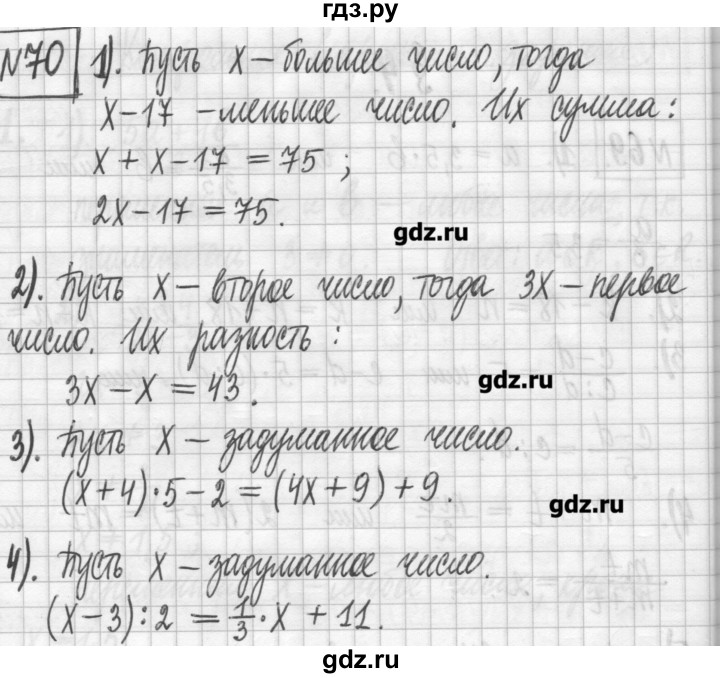 гдз.ру
№70 1). Пусть x – большее число, тогда
x – 17 – меньшее число. Их сумма:
x + x – 17 = 75 ;
2x – 17 = 75.
gdz.ru
2). Пусть x – второе число, тогда 3x – первое
число. Их разность :
3x – x = 43.
gdz.ru
3). Пусть x – задуманное число.
(x+4)·5 – 2 = (4x+9)+9.
gdz.ru
4). Пусть x – задуманное число.
(x–3):2 = 1/3·x + 11.
gdz.ru